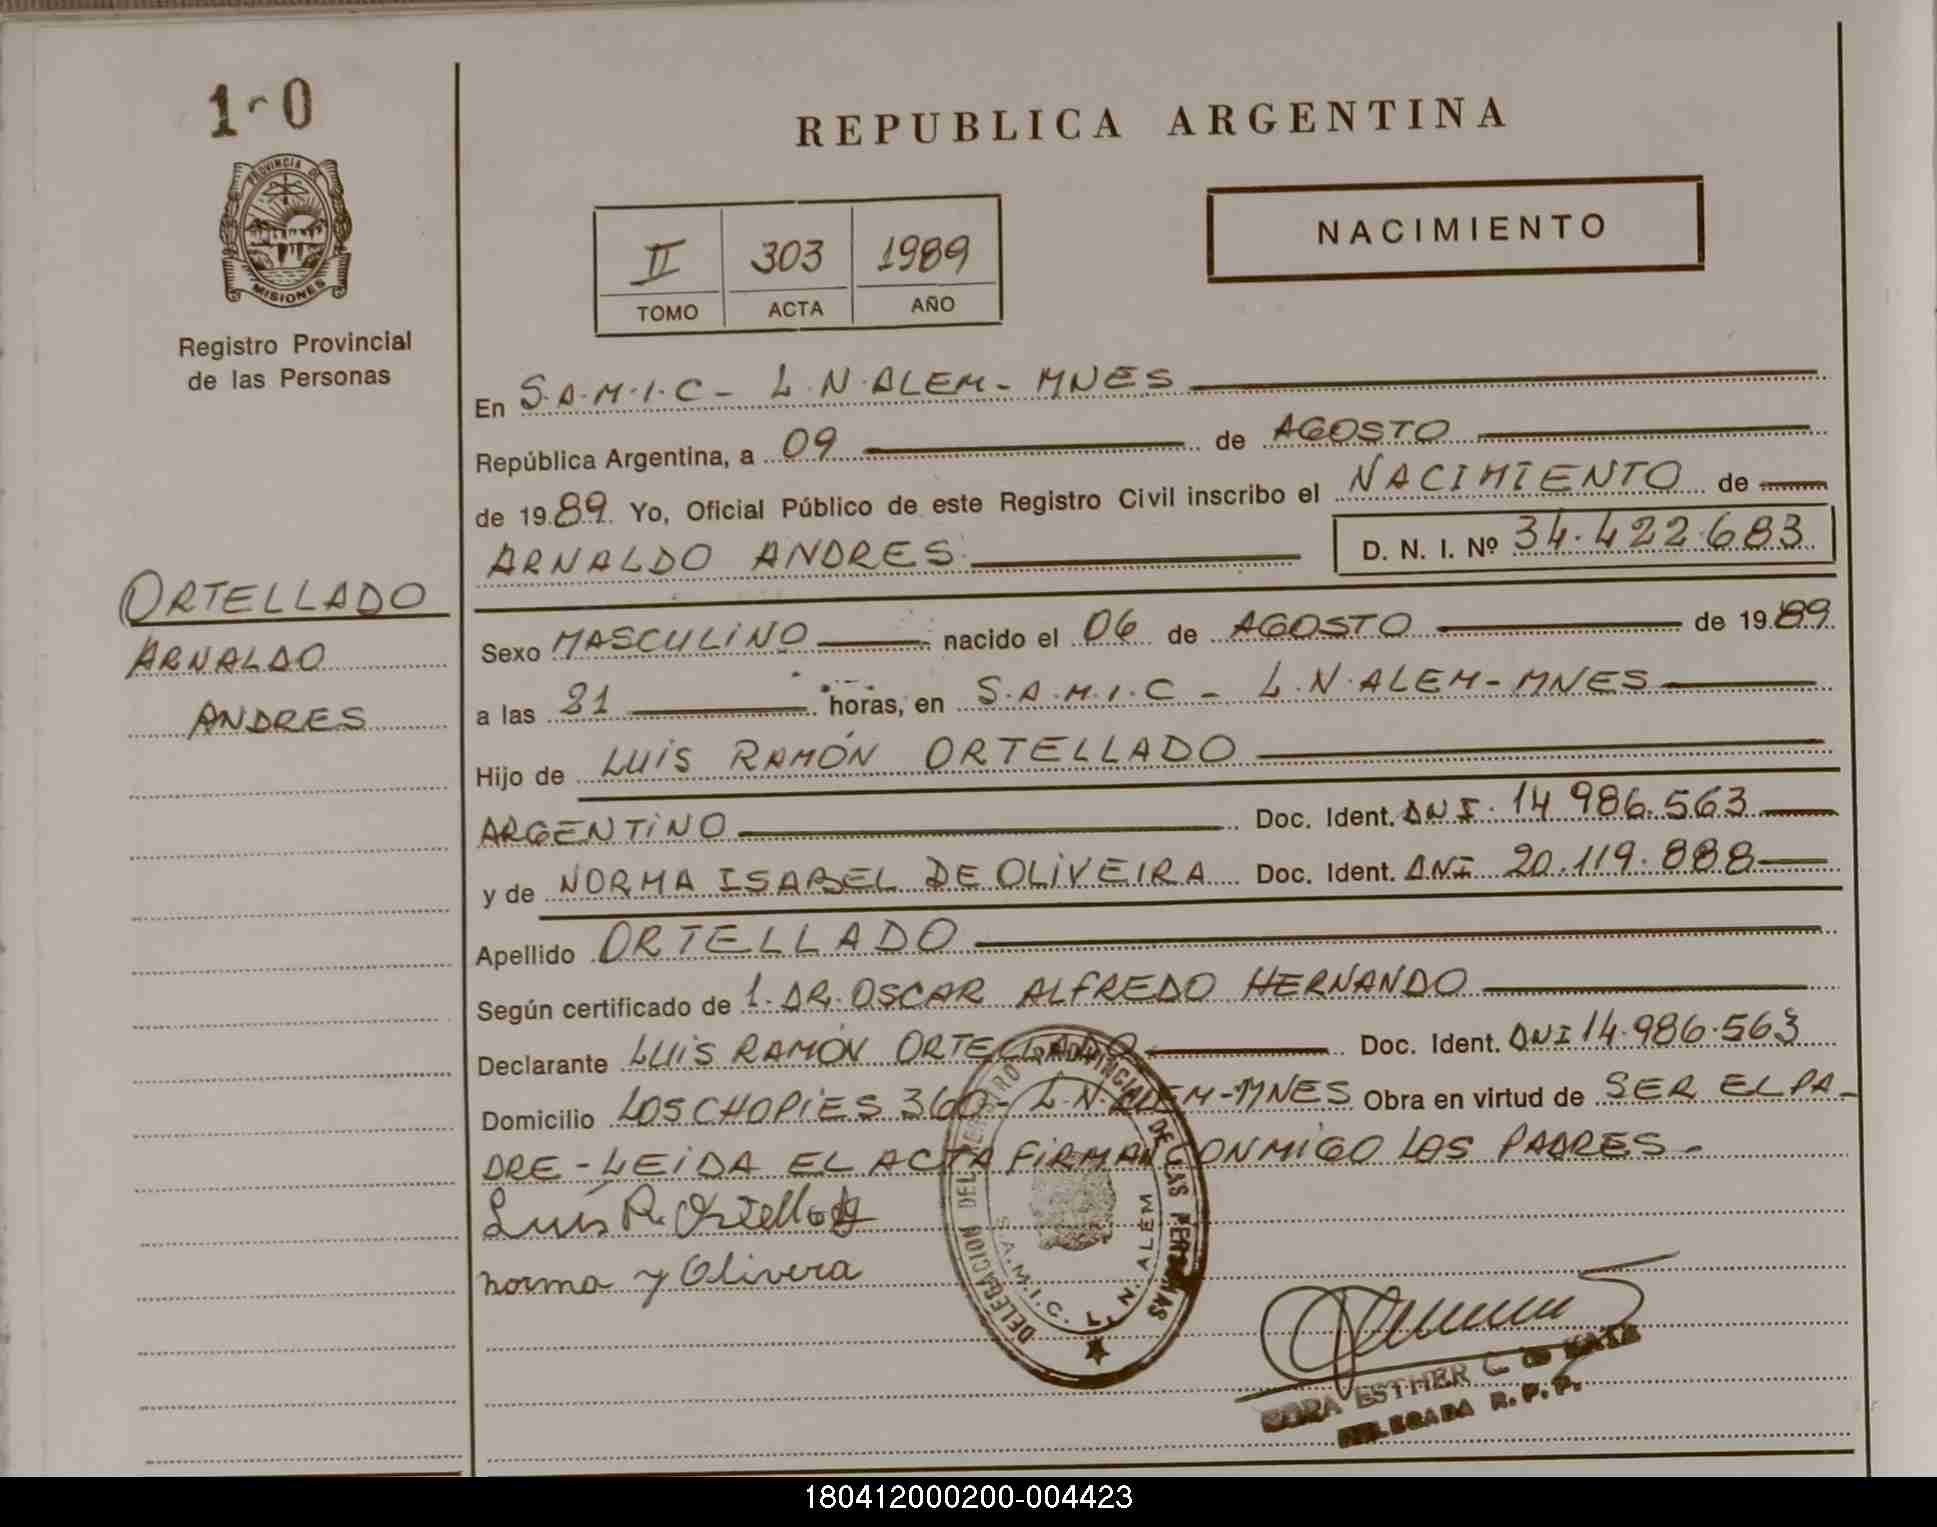 1-0
PROVINCIA DE
MISIONES
Registro Provincial
de las Personas
ORTELLADO
ARNALDO
ANDRES
REPUBLICA ARGENTINA
II 303 1989
TOMO ACTA AÑO
NACIMIENTO
En S.A.M.I.C - L.N.ALEM - MNES
República Argentina, a 09 de AGOSTO
de 1989. Yo, Oficial Público de este Registro Civil inscribo el NACIMIENTO de
ARNALDO ANDRES D. N. I. Nº 34.422.683
Sexo MASCULINO nacido el 06 de AGOSTO de 1989
a las 21 horas, en S.A.M.I.C - L.N.ALEM - MNES
Hijo de LUIS RAMÓN ORTELLADO
ARGENTINO Doc. Ident. DNI. 14.986.563
y de NORMA ISABEL DE OLIVEIRA Doc. Ident. DNI 20.119.888
Apellido ORTELLADO
Según certificado de 1. DR. OSCAR ALFREDO HERNANDO
Declarante LUIS RAMÓN ORTELLADO Doc. Ident. DNI 14.986.563
Domicilio LOS CHOPIES 360 - L.N.ALEM - MNES Obra en virtud de SER EL PA-
DRE - LEIDA EL ACTA FIRMAN CONMIGO LOS PADRES.-
Luis R. Ortellado
norma y Olivera
DELEGACION DEL REGISTRO PROVINCIAL DE LAS PERSONAS
S.A.M.I.C. L. N. ALEM
ESTHER C.
DELEGADA R.P.P.
180412000200-004423